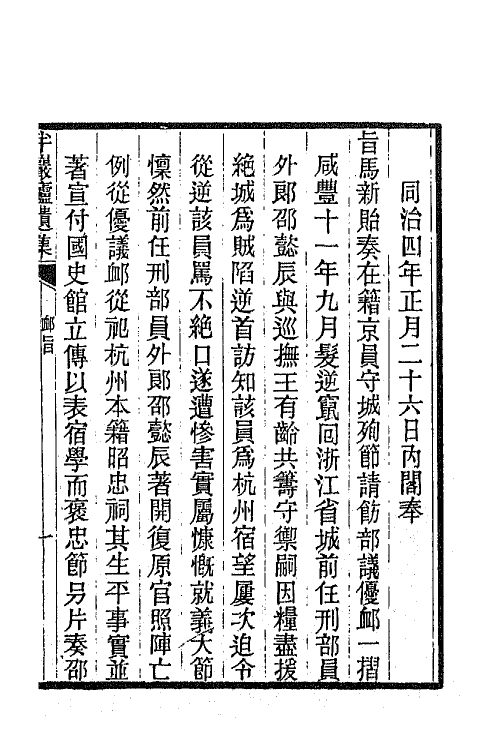 同治四年正月二十六日內閣奉
旨馬新貽奏在籍京員守城殉節請飭部議優卹一摺
咸豐十一年九月髮逆竄囘浙江省城前任刑部員
外郞邵懿辰與巡撫王有齡共籌守禦嗣因糧盡援
絕城爲賊陷逆首訪知該員爲杭州宿望屢次迫令
從逆該員罵不絕口遂遭慘害實屬慷慨就義大節
懍然前任刑部員外郞邵懿辰著開復原官照陣亡
例從優議卹從祀杭州本籍昭忠祠其生平事實並
著宣付國史館立傳以表宿學而褒忠節另片奏邵
半巖廬遺集
卹旨
一